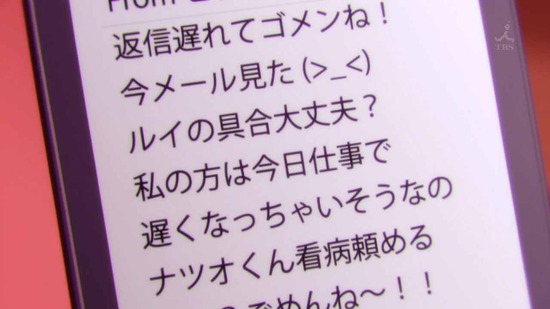 From
返信遅れてゴメンね！
今メール見た(>_<)
ルイの具合大丈夫？
私の方は今日仕事で
遅くなっちゃいそうなの
ナツオくん看病頼める
ごめんね～！！
TBS